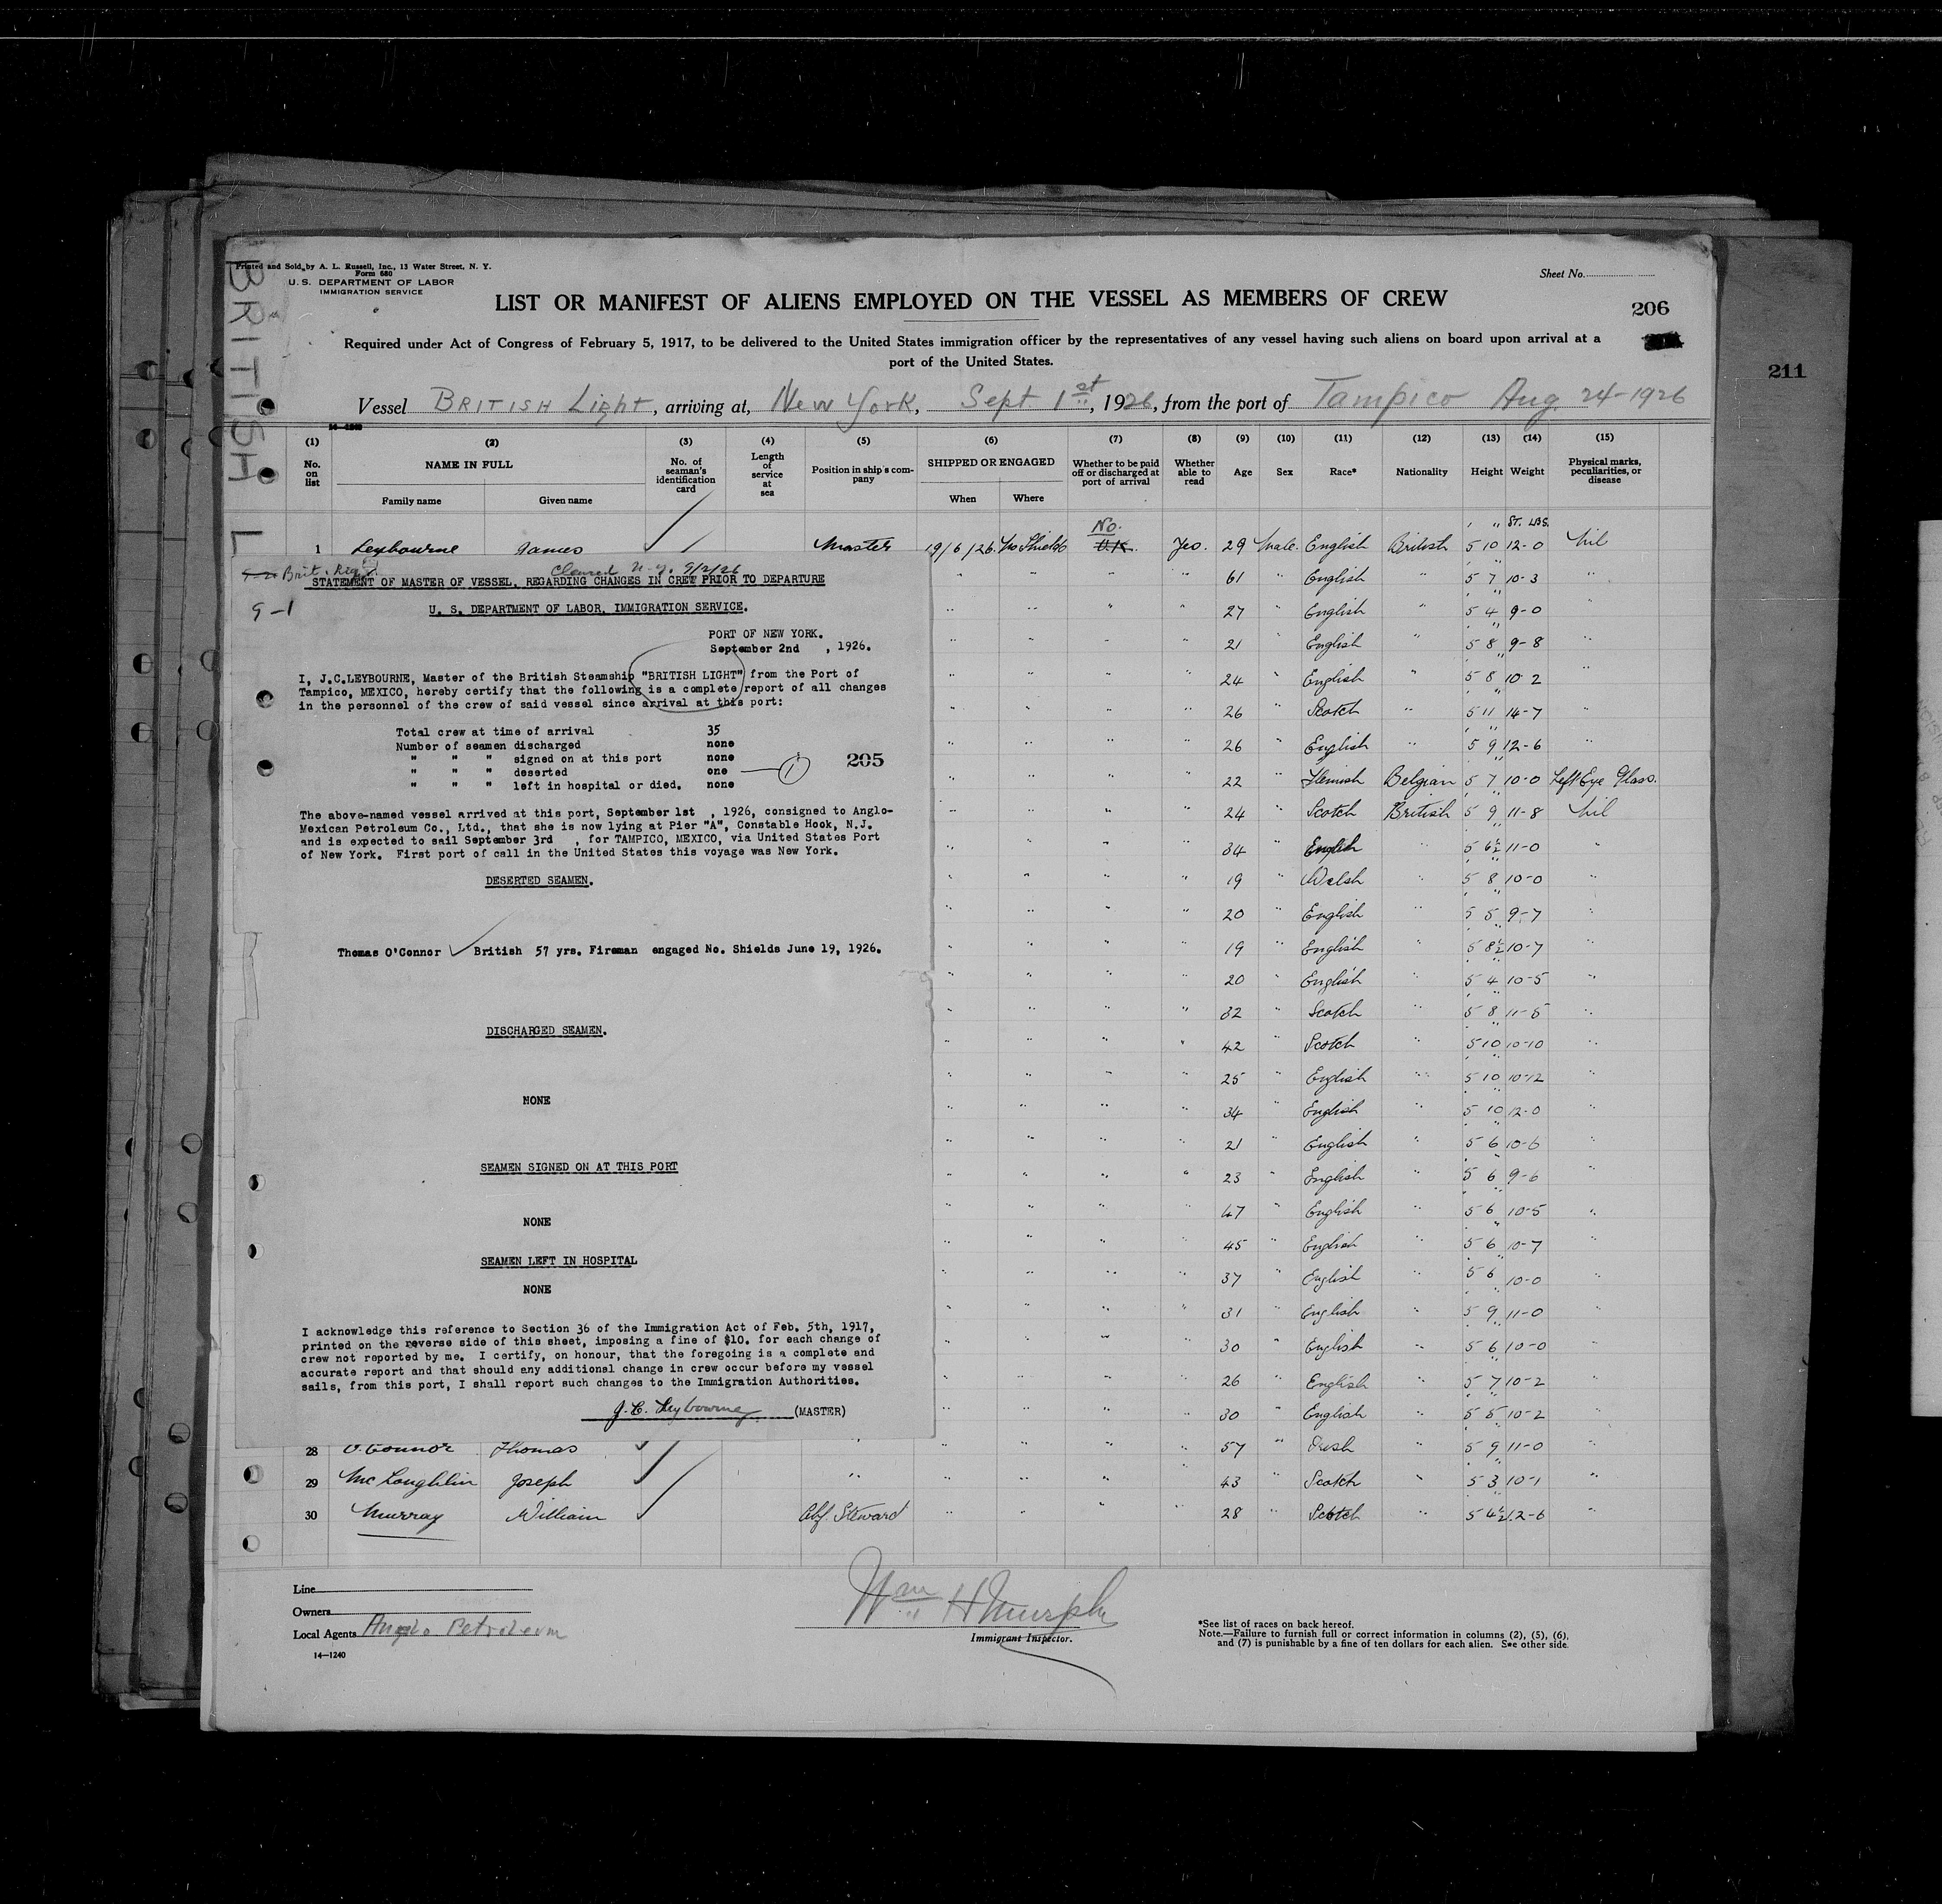 Printed and Sold by A. L. Russell, Inc., 13 Water Street, N. Y.
Form 680
U. S. DEPARTMENT OF LABOR
IMMIGRATION SERVICE
Sheet No.
LIST OR MANIFEST OF ALIENS EMPLOYED ON THE VESSEL AS MEMBERS OF CREW
206
211
BRITISH L
Required under Act of Congress of February 5, 1917, to be delivered to the United States immigration officer by the representatives of any vessel having such aliens on board upon arrival at a
port of the United States.
Vessel BRITISH Light, arriving at, New York, Sept 1st, 1926, from the port of Tampico Aug 24-1926
14-1240
(1) (2) (3) (4) (5) (6) (7) (8) (9) (10) (11) (12) (13) (14) (15)
No. on list NAME IN FULL Family name Given name No. of seaman's identification card Length of service at sea Position in ship's company SHIPPED OR ENGAGED When Where Whether to be paid off or discharged at port of arrival Whether able to read Age Sex Race* Nationality Height Weight Physical marks, peculiarities, or disease
No. ' " ST. LBS.
1 Leybourne James Master 19/6/26 No Shields U.K. Yes. 29 Male. English British 5 10 12-0 Nil
Brit. Reg. Cleared N.Y. 9/2/26
9-1
STATEMENT OF MASTER OF VESSEL, REGARDING CHANGES IN CREW PRIOR TO DEPARTURE
U. S. DEPARTMENT OF LABOR, IMMIGRATION SERVICE.
PORT OF NEW YORK.
September 2nd , 1926.
I, J.C.LEYBOURNE, Master of the British Steamship "BRITISH LIGHT" from the Port of
Tampico, MEXICO, hereby certify that the following is a complete report of all changes
in the personnel of the crew of said vessel since arrival at this port:
Total crew at time of arrival 35
Number of seamen discharged none
" " " signed on at this port none
" " " deserted one 1
" " " left in hospital or died. none
205
The above-named vessel arrived at this port, September 1st , 1926, consigned to Anglo-
Mexican Petroleum Co., Ltd., that she is now lying at Pier "A", Constable Hook, N.J.
and is expected to sail September 3rd , for TAMPICO, MEXICO, via United States Port
of New York. First port of call in the United States this voyage was New York.
DESERTED SEAMEN.
Thomas O'Connor British 57 yrs. Fireman engaged No. Shields June 19, 1926.
DISCHARGED SEAMEN.
NONE
SEAMEN SIGNED ON AT THIS PORT
NONE
SEAMEN LEFT IN HOSPITAL
NONE
I acknowledge this reference to Section 36 of the Immigration Act of Feb. 5th, 1917,
printed on the reverse side of this sheet, imposing a fine of $10. for each change of
crew not reported by me. I certify, on honour, that the foregoing is a complete and
accurate report and that should any additional change in crew occur before my vessel
sails, from this port, I shall report such changes to the Immigration Authorities.
J. C. Leybourne (MASTER)
" " " " 61 " English " 5 7 10-3 "
" " " " 27 " English " 5 4 9-0 "
" " " " 21 " English " 5 8 9-8 "
" " " " 24 " English " 5 8 10 2 "
" " " " 26 " Scotch " 5 11 14-7 "
" " " " 26 " English " 5 9 12-6 "
" " " " 22 " Flemish Belgian 5 7 10-0 Left Eye Glass.
" " " " 24 " Scotch British 5 9 11-8 Nil
" " " " 34 " English " 5 6½ 11-0 "
" " " " 19 " Welsh " 5 8 10-0 "
" " " " 20 " English " 5 5 9-7 "
" " " " 19 " English " 5 8½ 10-7 "
" " " " 20 " English " 5 4 10-5 "
" " " " 32 " Scotch " 5 8 11-5 "
" " " " 42 " Scotch " 5 10 10-10 "
" " " " 25 " English " 5 10 10-12 "
" " " " 34 " English " 5 10 12-0 "
" " " " 21 " English " 5 6 10-6 "
" " " " 23 " English " 5 6 9-6 "
" " " " 47 " English " 5 6 10-5 "
" " " " 45 " English " 5 6 10-7 "
" " " " 37 " English " 5 6 10-0 "
" " " " 31 " English " 5 9 11-0 "
" " " " 30 " English " 5 6 10-0 "
" " " " 26 " English " 5 7 10-2 "
" " " " 30 " English " 5 5 10-2 "
28 O'Connor Thomas " " " " " 57 " Irish " 5 9 11-0 "
29 McLoughlin Joseph " " " " " 43 " Scotch " 5 3 10-1 "
30 Murray William Chf. Steward " " " " 28 " Scotch " 5 4½ 12-6 "
Line
Owners
Local Agents Anglo Petroleum
14-1240
Wm H Murphy
Immigrant Inspector.
*See list of races on back hereof.
Note.—Failure to furnish full or correct information in columns (2), (5), (6),
and (7) is punishable by a fine of ten dollars for each alien. See other side.